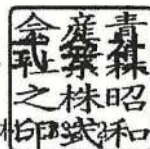 青森昭和
産業株式
会社之印